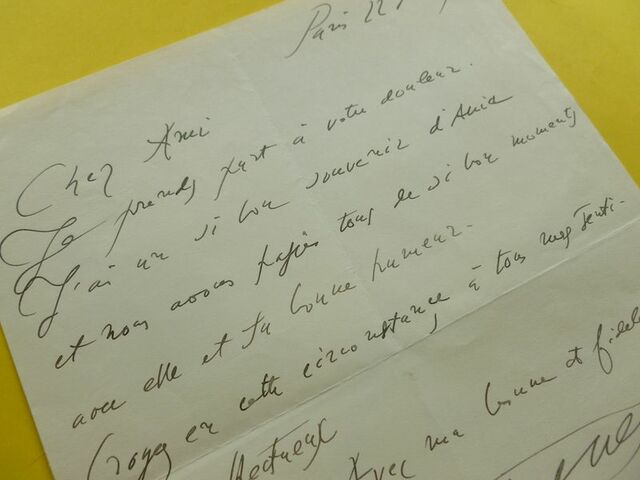 Paris 22
Cher Ami
Je prends part à votre douleur.
J'ai un si bon souvenir d'Anie
et nous avons passés tous de si bon moments
avec elle et sa bonne humeur.
Croyez en cette circonstance à tous mes senti-
Avec ma bonne et fidel